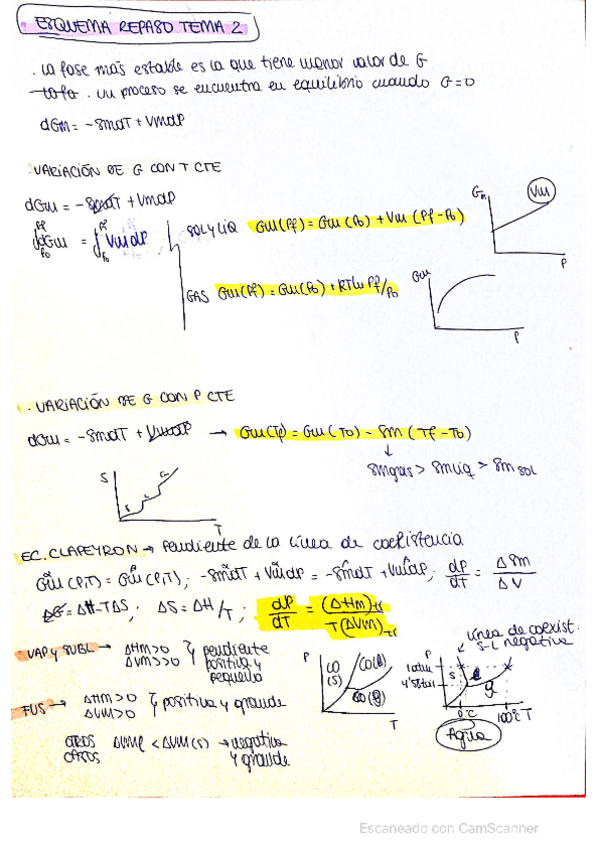 ESQUEMA REPASO TEMA 2
. La fase más estable es la que tiene menor valor de G
. un proceso se encuentra en equilibrio cuando G=0
dGm = -SmdT + VmdP
. VARIACIÓN DE G CON T CTE
dGm = -SmdT + VmdP
∫dGm = ∫VmdP
Pf Po
SOL y LIQ Gm(Pf) = Gm(Po) + Vm (Pf - Po)
GAS Gm(Pf) = Gm(Po) + RTln Pf/Po
Gm Vm P
Gm P
. VARIACIÓN DE G CON P CTE
dGm = -SmdT + VmdP → Gm(Tf) = Gm(To) - Sm (Tf - To)
↓
Smgas > Smliq > Sm SOL
S T
EC. CLAPEYRON → Pendiente de la línea de coexistencia
Gm(P,T) = Gm(P,T); -SmdT + VmdP = -SmdT + VmdP; dP/dT = ΔSm/ΔV
ΔG = ΔH-TΔS; ΔS = ΔH/T; dP/dT = (ΔHm)tr/T(ΔVm)tr
VAP y SUBL → ΔHm>0 ΔVm>>0 } pendiente positiva y pequeña
FUS → ΔHm>0 ΔVm>0 } positiva y grande
OTROS CASOS ΔVml < ΔVm(s) → negativa y grande
P CO (s) CO(l) CO(g) T
línea de coexist. S-L negativa
P 1atm S l g 0°C 100°C T
Agua
Escaneado con CamScanner